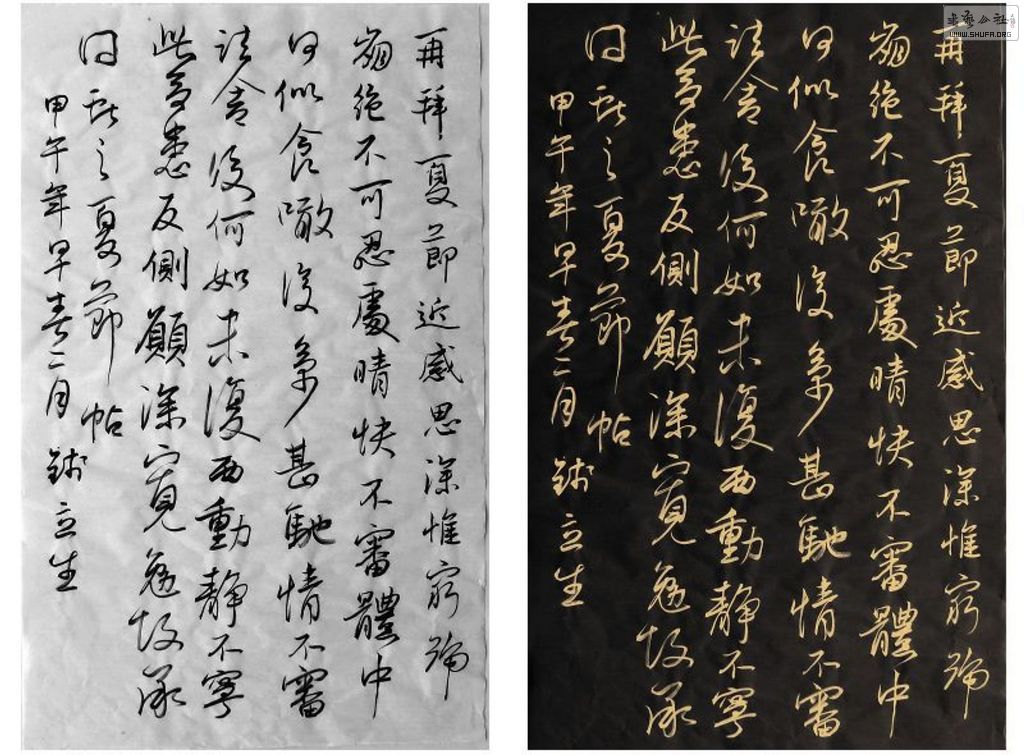 再拜夏節近感思深惟窮號
崩絕不可忍處晴快不審體中
何似食噉復多少甚馳情不審
諸舍復何如未復西動靜不寧
此多患反側願深寬勉故承
問 之夏節帖
甲午年早春二月 立生
再拜夏節近感思深惟窮號
崩絕不可忍處晴快不審體中
何似食噉復多少甚馳情不審
諸舍復何如未復西動靜不寧
此多患反側願深寬勉故承
問 之夏節帖
甲午年早春二月 立生
书艺公社
WWW.SHUFA.ORG